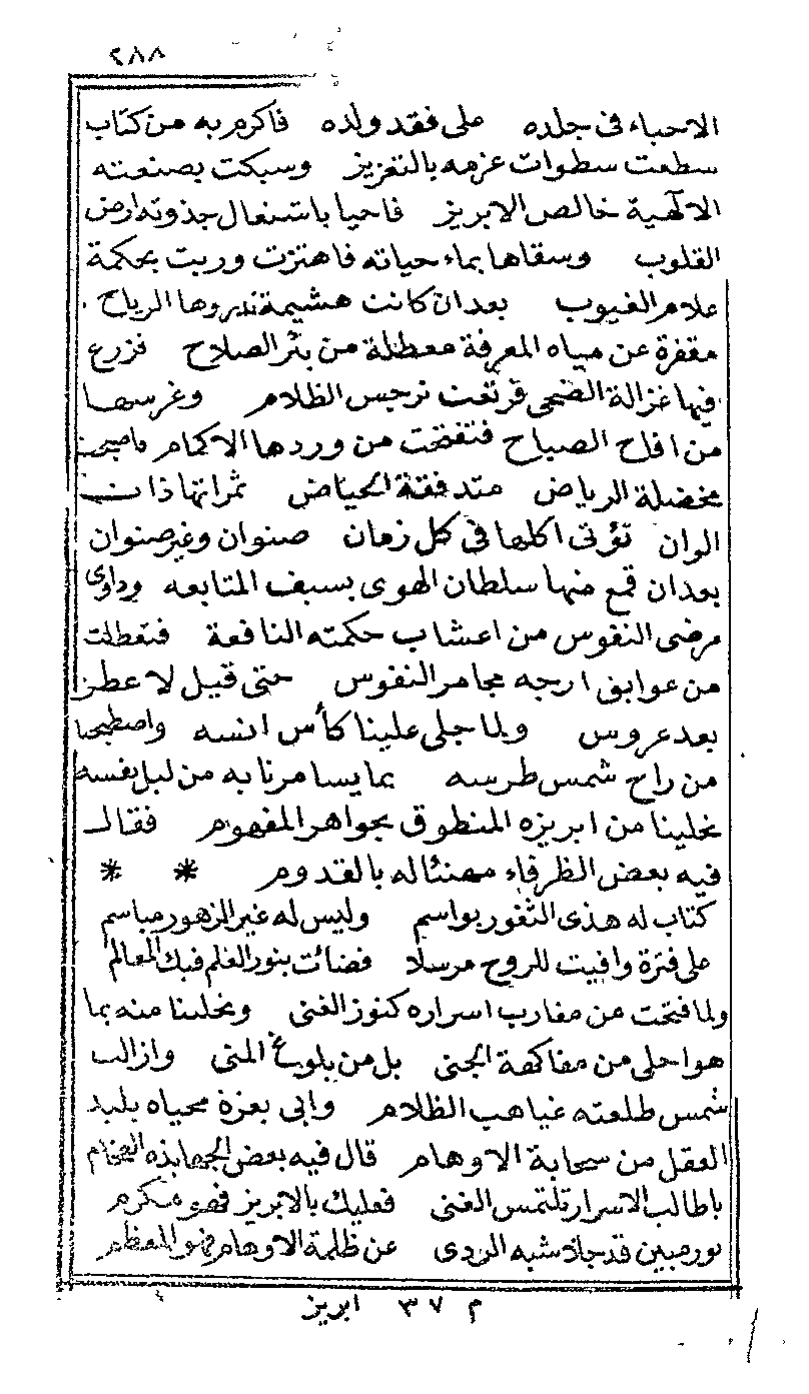 ٢٨٨
الاحباء فى جلده على فقد ولده فاكرم به من كتاب
سطعت سطوات عزمه بالتعزيز وسبكت بصنعته
الالهية خالص الابريز فاحيا باشتعال جذوته ارض
القلوب وسقاها بماء حياته فاهتزت وربت بحكمة
علام الغيوب بعد ان كانت هشيمة تذروها الرياح
مقفرة عن مياه المعرفة معطلة من بئر الصلاح فزرع
فيها غزالة الضحى فرتعت نرجس الظلام وغرسها
من افلح الصباح فتفتحت من وردها الاكمام فاصبحت
مخضلة الرياض متدفقة الحياض ثمراتها ذات
الوان تؤتى اكلها فى كل زمان صنوان وغير صنوان
بعد ان قمع منها سلطان الهوى بسيف المتابعه وداوى
مرضى النفوس من اعشاب حكمته النافعة فتعطلت
من عوابق ارجه مجامر النفوس حتى قيل لا عطر
بعد عروس ولما جلى علينا كأس انسه واصطبحنا
من راح شمس طرسه بما يسامرنا به من لبل نفسه
تحلينا من ابريزه المنطوق بجواهر المفهوم فقال
فيه بعض الظرفاء مهنئا له بالقدوم * *
كتاب له هذى الثغور بواسم وليس له غير الزهور مباسم
على فترة وافيت للروح مرسلا فضائت بنور العلم فيك المعالم
ولما فتحت من مغارب اسراره كنوز الغنى وتحلينا منه بما
هو احلى من مفاكهة الجنى بل من بلوغ المنى وازالت
شمس طلعته غياهب الظلام وابى بعزة محياه بلبد
العقل من سحابة الاوهام قال فيه بعض الجهابذه الفخام
يا طالب الاسرار تلتمس الغنى فعليك بالابريز فهو مكرم
نور مبين قد جلا شبه الردى عن ظلمة الاوهام فهو المعظم
م ٣٧ ابريز